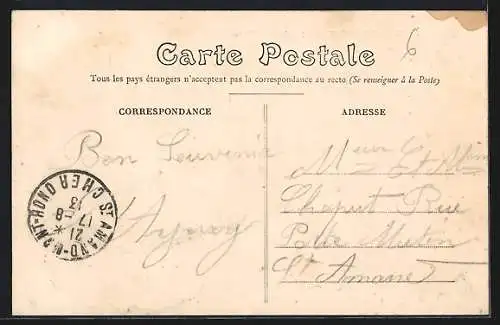 6
Carte Postale
Tous les pays étrangers n'acceptent pas la correspondance au recto (Se renseigner à la Poste)
CORRESPONDANCE
ADRESSE
Bon Souvenir
Chaput Rue
Porte Mutin
St Amand
ST AMAND-MONT-ROND
CHER
21
17-8
13